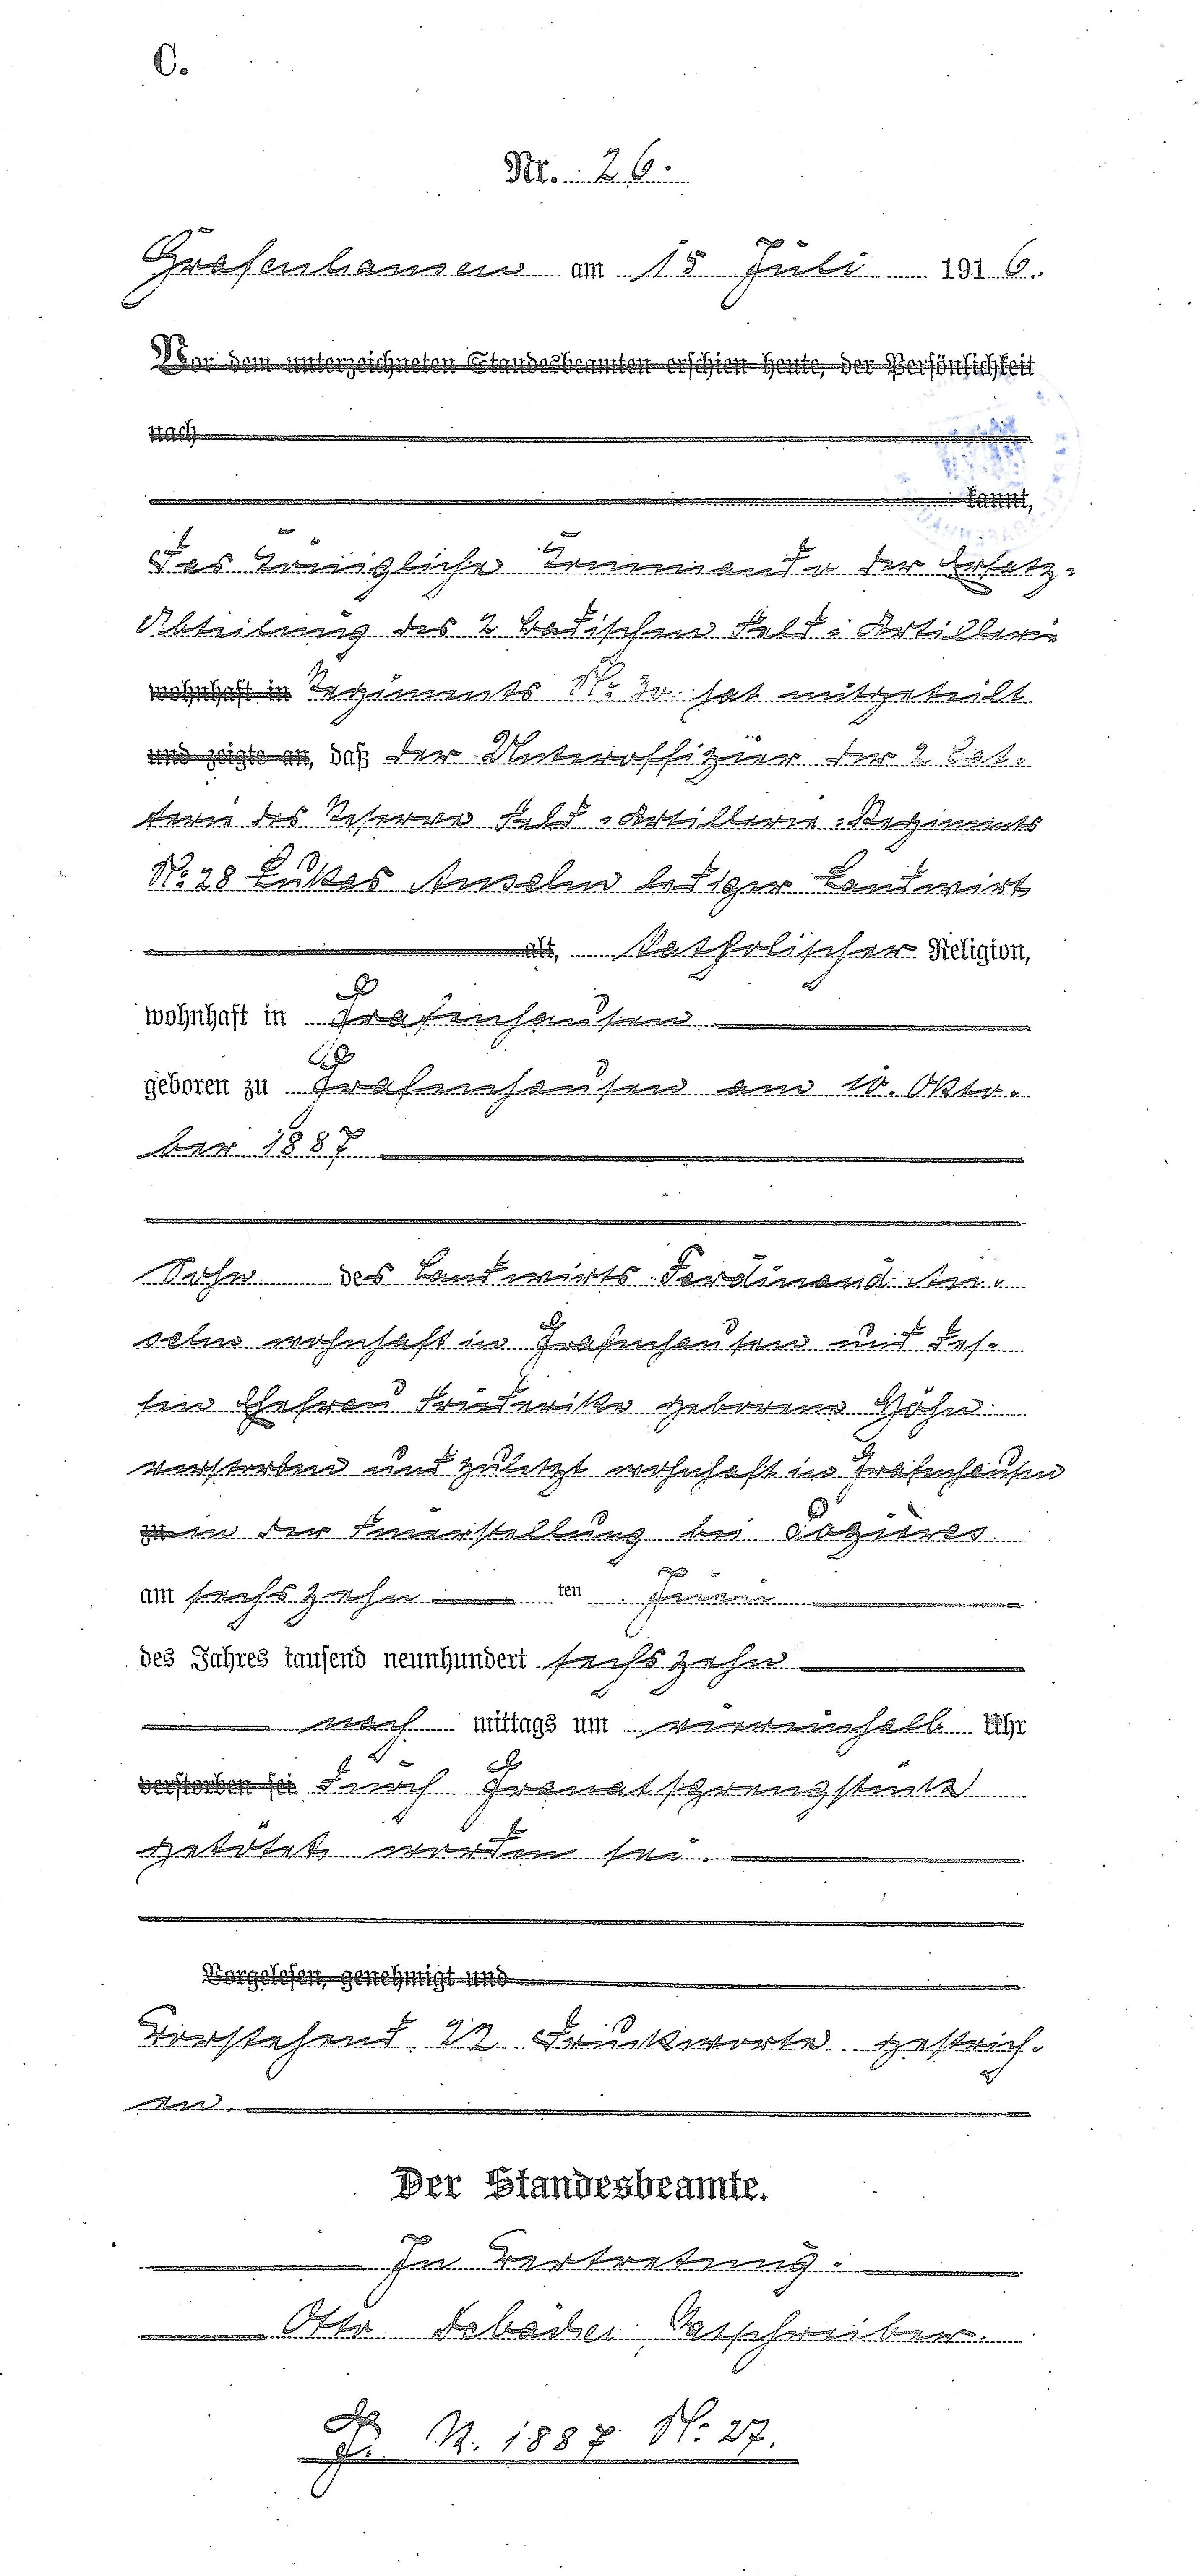 C.
Nr. 26.
Grafenhausen am 15 Juli 1916.
Vor dem unterzeichneten Standesbeamten erschien heute, der Persönlichkeit
nach
kannt,
Das Königliche Kommando der Ersatz-
Abteilung des 2 Badischen Feld-Artillerie
wohnhaft in Regiments N: 30. hat mitgeteilt
und zeigte an, daß der Unteroffizier der 2 Bat-
terie des Reserve Feld-Artillerie-Regiments
N: 28 Lukas Anselm lediger Landwirt
alt, katholischer Religion,
wohnhaft in Grafenhausen
geboren zu Grafenhausen am 10. Okto-
ber 1887
Sohn des Landwirts Ferdinand An-
selm wohnhaft in Grafenhausen und des-
sen Ehefrau Friederike geborene Höhn
verstorben und zuletzt wohnhaft in Grafenhausen
zu in der Feuerstellung bei Pozières
am sechszehn ten Juni
des Jahres tausend neunhundert sechszehn
nach mittags um viereinhalb Uhr
verstorben sei durch Granatsprengstücke
getötet worden sei.
Vorgelesen, genehmigt und
Vorstehend 22 Druckworte gestrich-
en.
Der Standesbeamte.
In Vertretung:
Otto Ratschreiber.
G. R. 1887 N: 27.